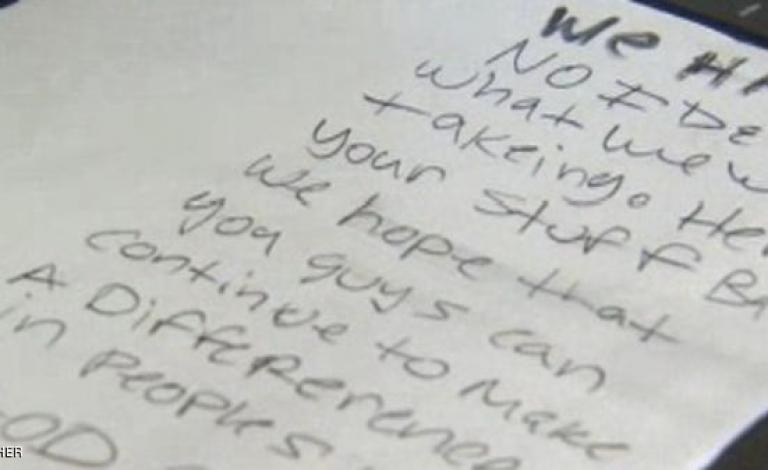 We HA
NO IDE
what we w
takeing. He
your stuff BA
we hope that
you guys can
continue to Make
A Differerence
in peoples
OD
HER